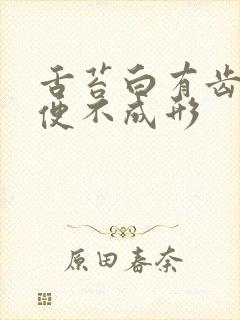 舌苔白有齿
便不成形
原田春奈